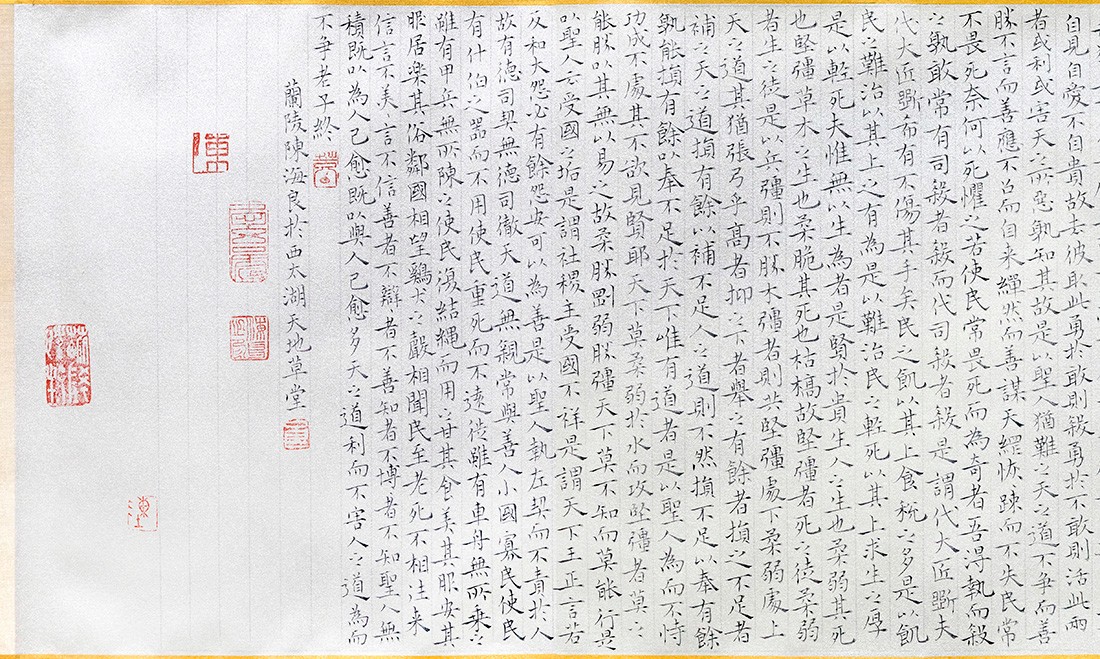 自見自愛不自貴故去彼取此勇於敢則殺勇於不敢則活此兩
者或利或害天之所惡孰知其故是以聖人猶難之天之道不爭而善
勝不言而善應不召而自来繟然而善謀天網恢踈而不失民常
不畏死奈何以死懼之若使民常畏死而為奇者吾得執而殺
之孰敢常有司殺者殺而代司殺者殺是謂代大匠斵夫
代大匠斵希有不傷其手矣民之飢以其上食稅之多是以飢
民之難治以其上之有為是以難治民之輕死以其上求生之厚
是以輕死夫惟無以生為者是賢於貴生人之生也柔弱其死
也堅彊草木之生也柔脆其死也枯槁故堅彊者死之徒柔弱
者生之徒是以兵彊則不勝木彊者則共堅彊處下柔弱處上
天之道其猶張弓乎髙者抑之下者舉之有餘者損之不足者
補之天之道損有餘以補不足人之道則不然損不足以奉有餘
孰能損有餘以奉不足於天下唯有道者是以聖人為而不恃
功成不處其不欲見賢耶天下莫柔弱於水而攻堅彊者莫之
能勝以其無以易之故柔勝剛弱勝彊天下莫不知而莫能行是
以聖人云受國之垢是謂社稷主受國不祥是謂天下王正言若
反和大怨必有餘怨安可以為善是以聖人執左契而不責於人
故有德司契無德司徹天道無親常與善人小國寡民使民
有什伯之器而不用使民重死而不遠徙雖有車舟無所乗之
雖有甲兵無所陳之使民復結繩而用之甘其食美其服安其
居楽其俗鄰國相望鷄犬之聲相聞民至老死不相往来
信言不美〻言不信善者不辯者不善知者不博者不知聖人無
積既以為人己愈既以與人己愈多天之道利而不害人之道為而
不爭老子終
蘭陵陳海良於西太湖天地草堂